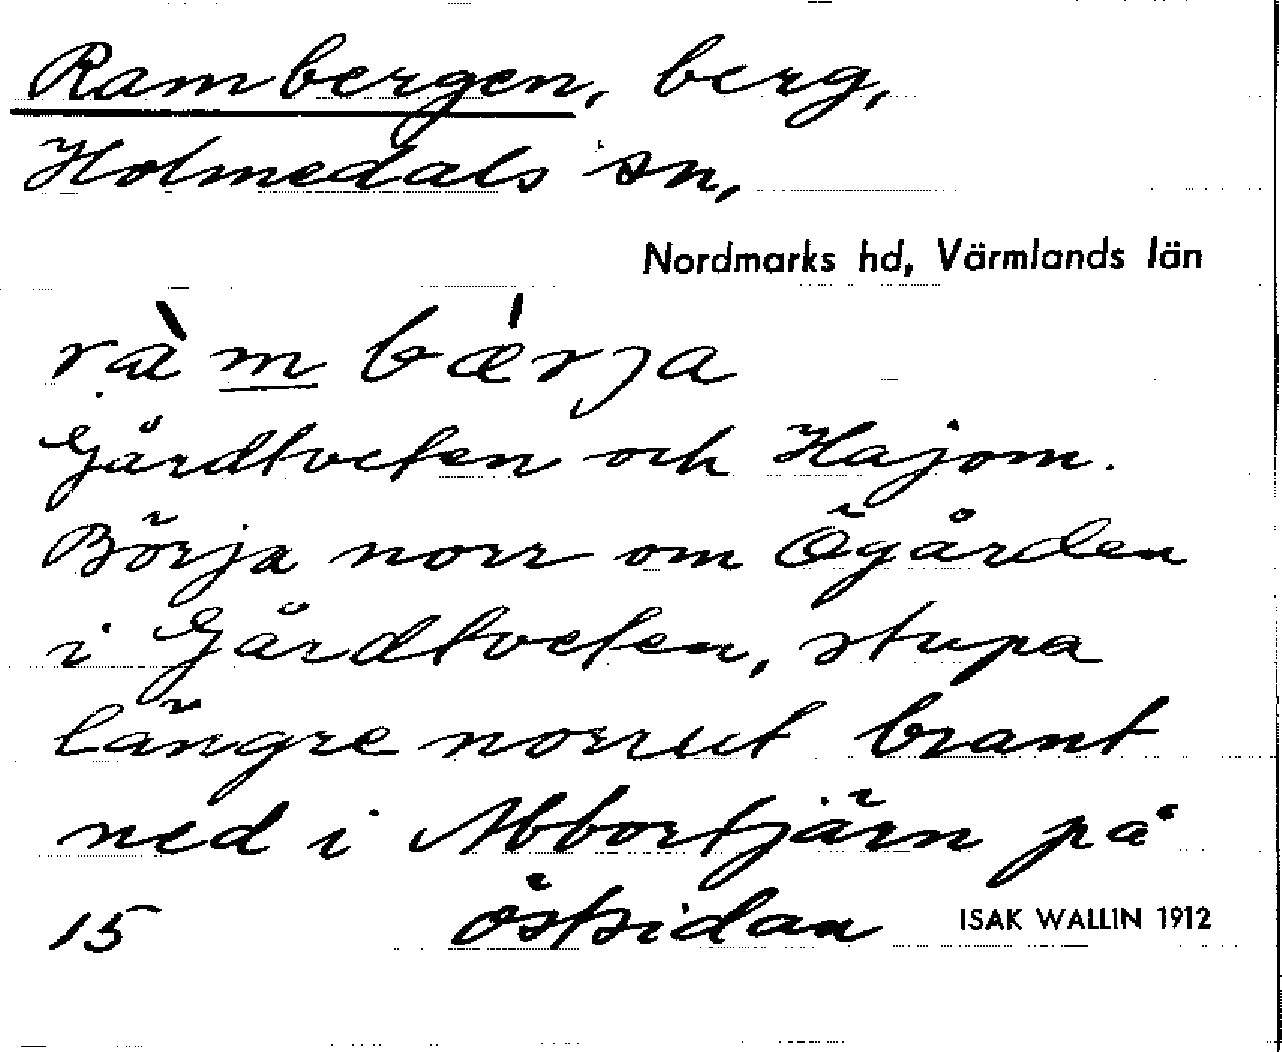 Rambergen, berg,
Holmedals sn,
Nordmarks hd, Värmlands län
ràm bǽrja
Gårdtveten och Hajom.
Börja norr om Ögården
i Gårdtveten, stupa
längre norrut brant
ned i Abbortjärn på
östsidan
15
ISAK WALLIN 1912